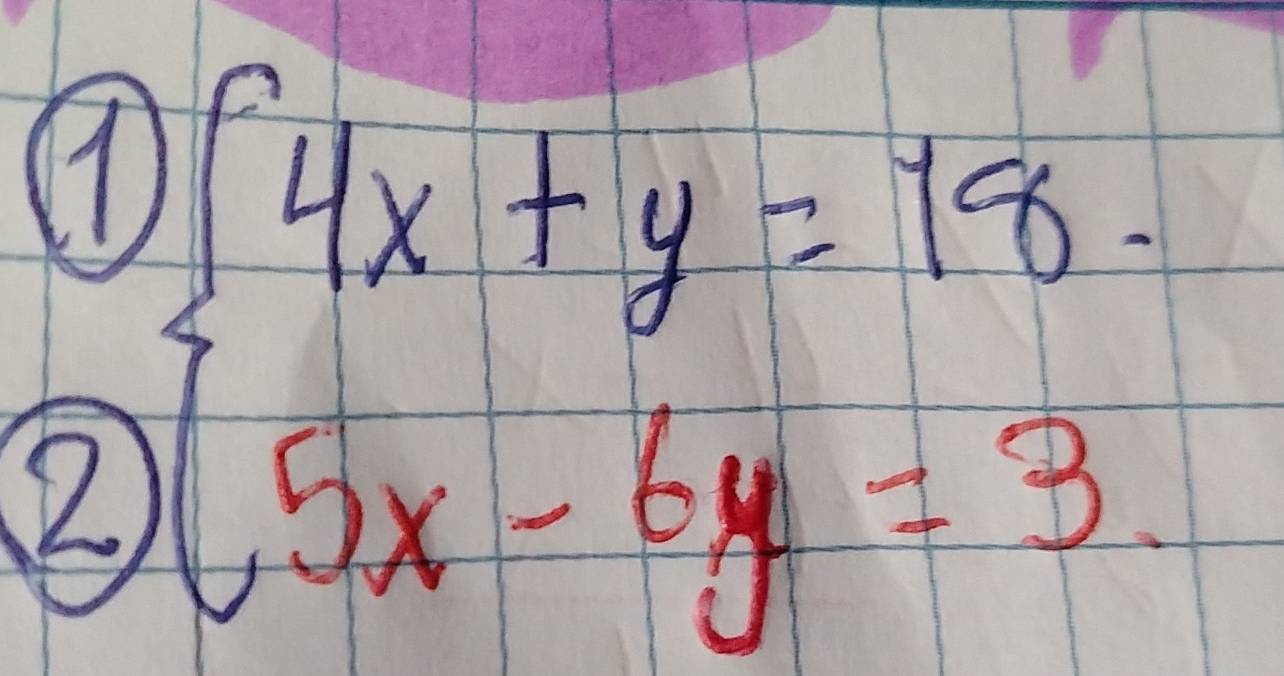 ① { 4x + y = 18.
② 5x - 6y = 3.